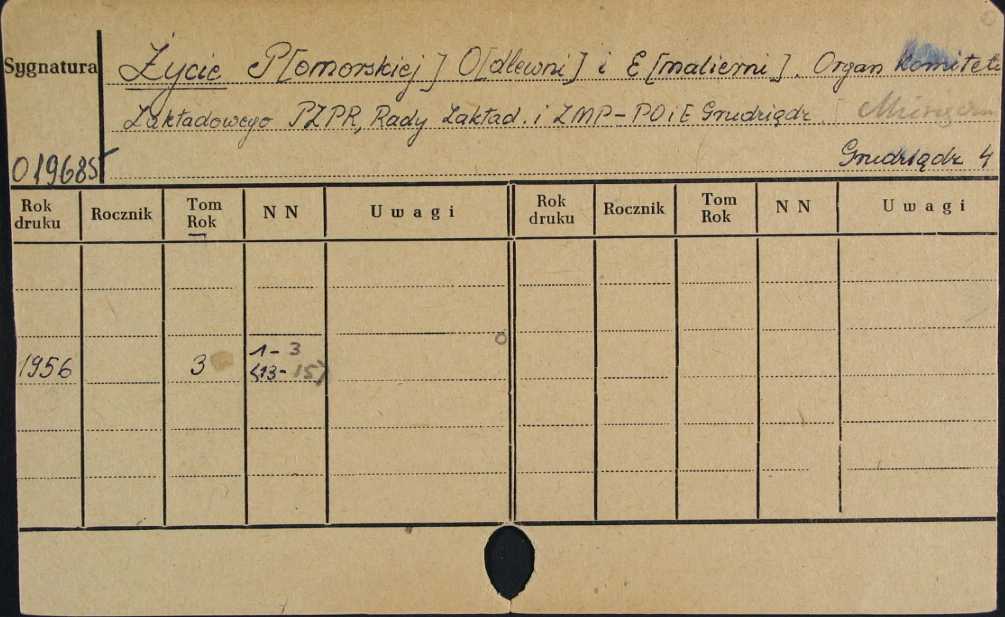 Sygnatura Życie P[omorskiej] O[dlewni] i E[malierni]. Organ Komitetu
Zakładowego PZPR, Rady Zakład. i ZMP-POiE Grudziądz.
019685 Grudziądz 4
Rok druku Rocznik Tom Rok NN Uwagi Rok druku Rocznik Tom Rok NN Uwagi
1956 3 1-3
(13-15)